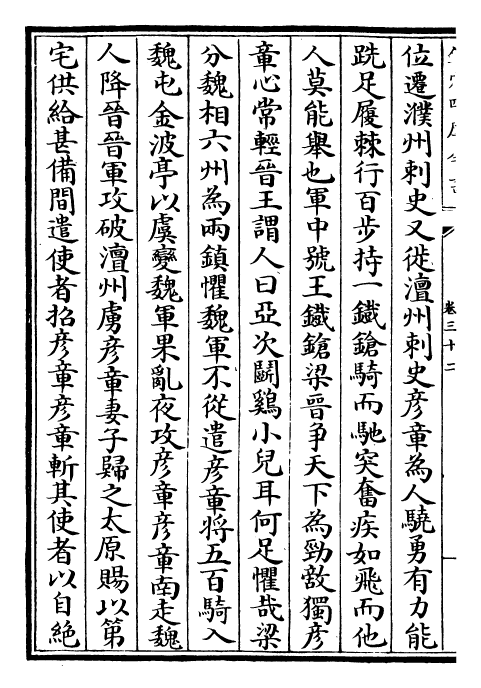 卷三十二
位遷濮州刺史又徙澶州刺史彦章為人驍勇有力能
跣足履棘行百步持一鐡鎗騎而馳突奮疾如飛而他
人莫能舉也軍中號王鐡鎗梁晉争天下為勁敵獨彦
章心常輕晉王謂人曰亞次鬬鷄小兒耳何足懼哉梁
分魏相六州為兩鎮懼魏軍不從遣彦章將五百騎入
魏屯金波亭以虞變魏軍果亂夜攻彦章彦章南走魏
人降晉晉軍攻破澶州虜彦章妻子歸之太原賜以第
宅供給甚備間遣使者招彦章彦章斬其使者以自絶